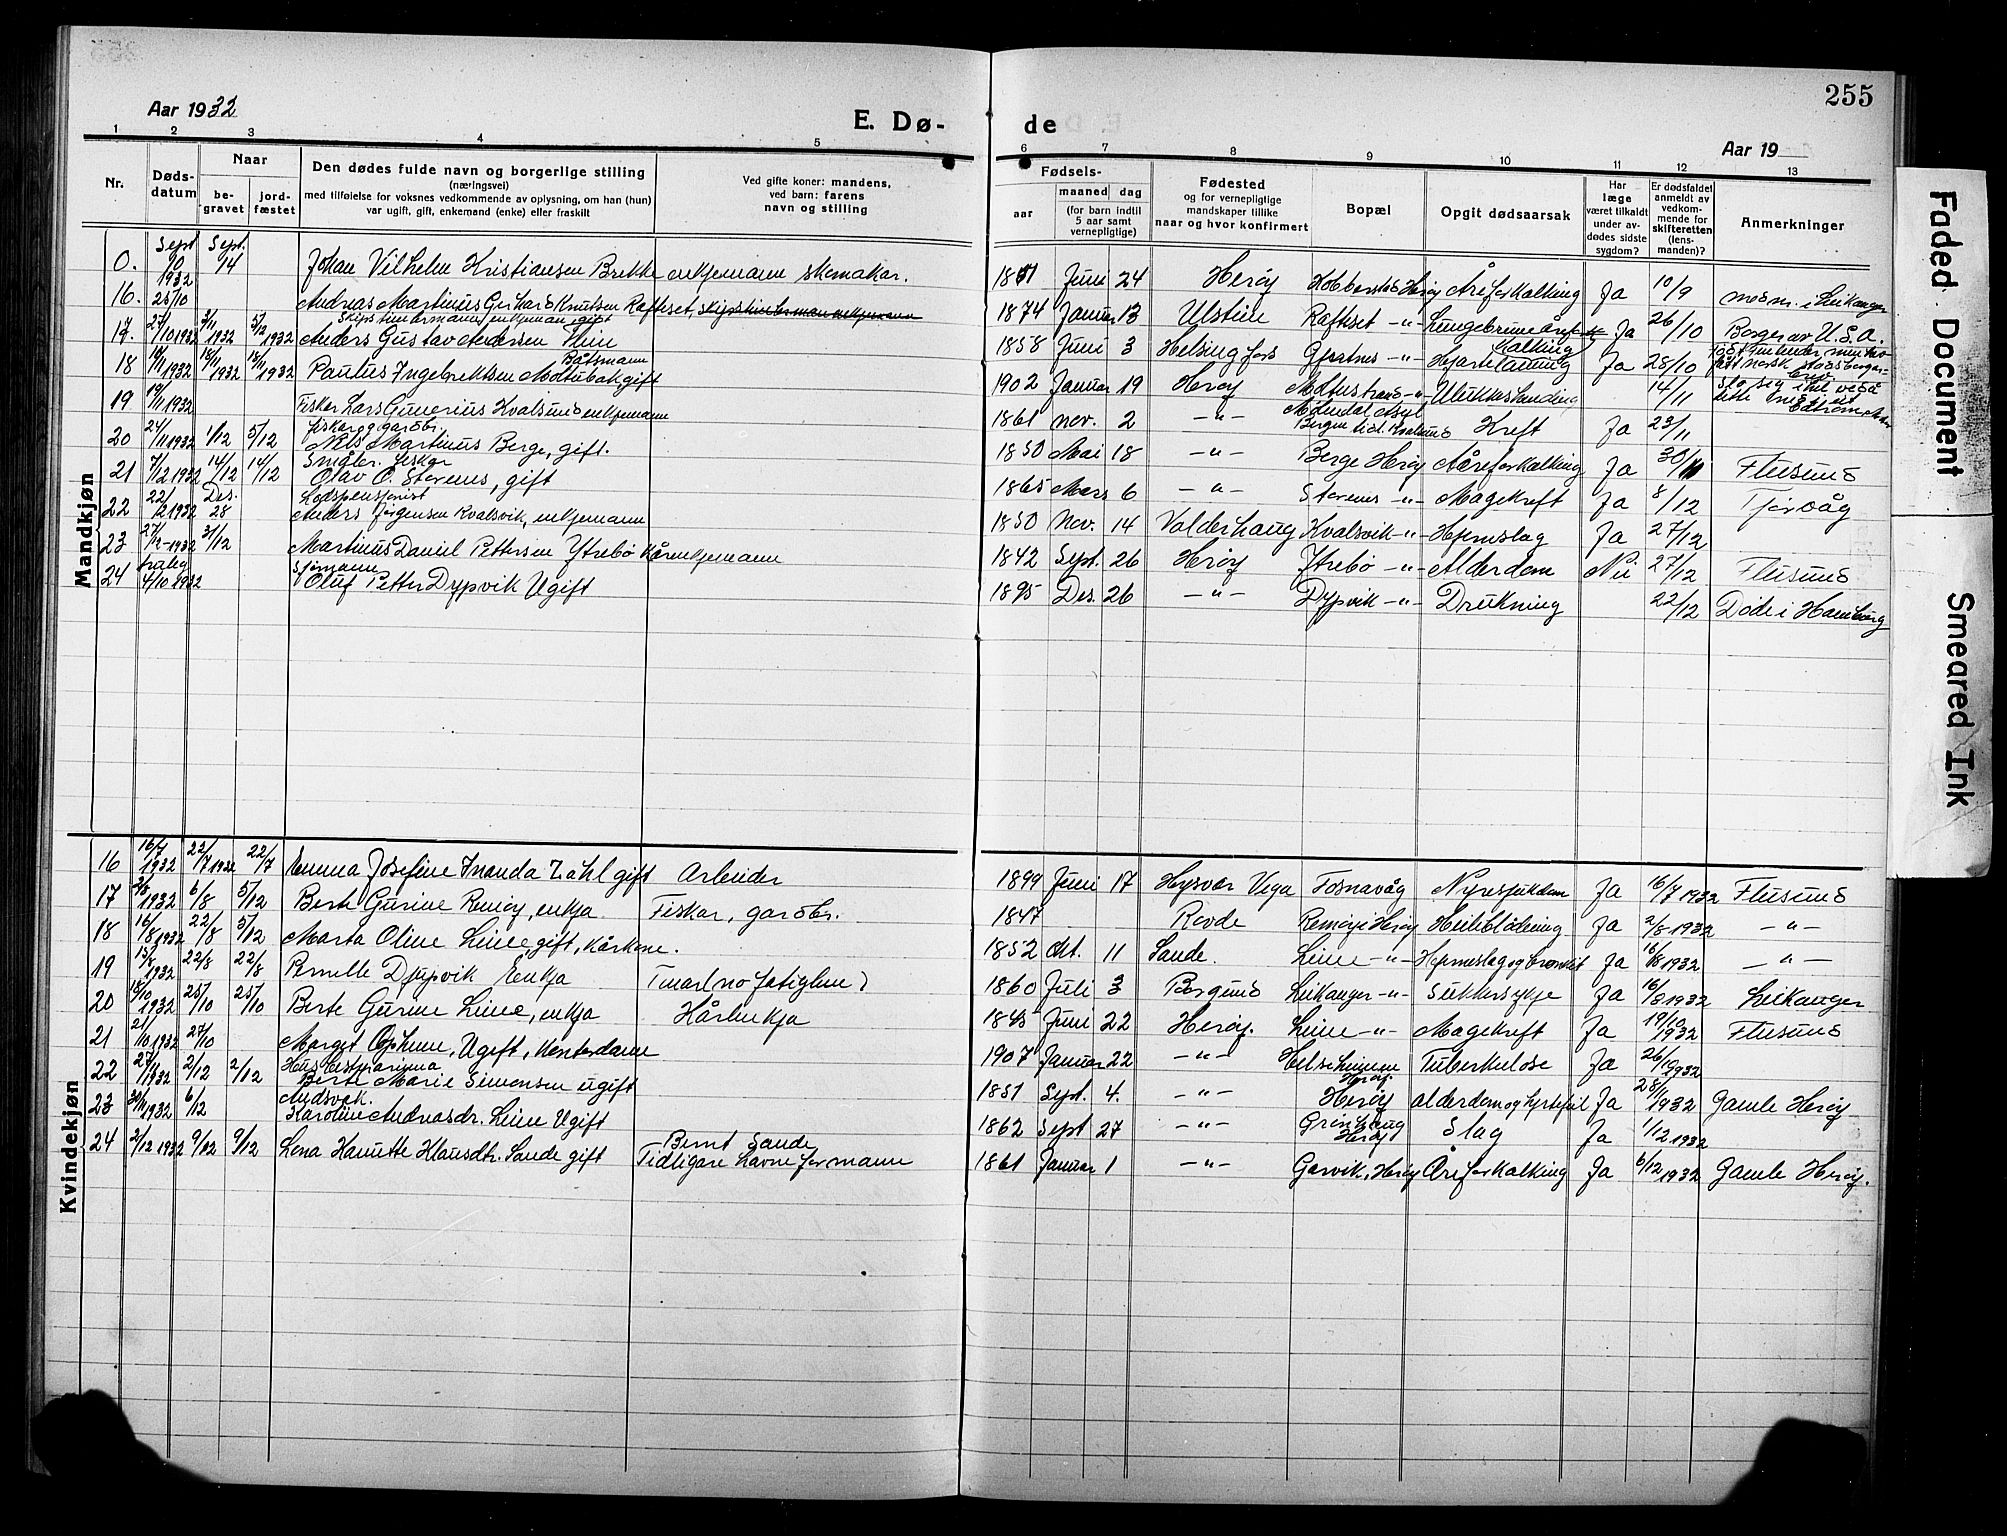 255
Aar 1932
E. Dø-
de
Aar 19
1 2 3 4 5 6 7 8 9 10 11 12 13
Nr.
Døds-
datum
Naar
be-
gravet
jord-
fæstet
Den dødes fulde navn og borgerlige stilling
(næringsvei)
med tilføielse for voksnes vedkommende av oplysning, om han (hun)
var ugift, gift, enkemand (enke) eller fraskilt
Ved gifte koner: mandens,
ved barn: farens
navn og stilling
Fødsels-
aar
maaned
dag
(for barn indtil
5 aar samt
vernepligtige)
Fødested
og for vernepligtige
mandskaper tillike
naar og hvor konfirmert
Bopæl
Opgit dødsaarsak
Har
læge
været tilkaldt
under av-
dødes sidste
sygdom?
Er dødsfaldet
anmeldt av
vedkom-
mende for
skifteretten
(lens-
manden)?
Anmerkninger
Mandkjøn
0. Sept 10 1932 Sept. 14 Johan Vilhelm Kristiansen Brekke enkjemann skomakar. Juni 24 Herøy Åreforkalking Ja 10/9
16. 25/10 Andreas Martinus Gerhard Knutsen Raftset, skipstimberman enkjemann 1874 Januar 13 Ulstein Raftset -"- Ja 26/10 Borger av U.S.A.
Skipstimbermann, enkjeman gift
17. 27/10 1932 3/11 1932 5/12 1932 Anders Gustav Andersen 1858 Juni 3 Helsingfors Gjertnes -"- Ja 28/10
Båtsmann
18 10/11 1932 18/11 1932 18/11 1932 Paulus Ingebrektsen Moltubak, gift 1902 Januar 19 Herøy 14/11
19 19/11 1932 Fiskar Lars Gunerius Kvalsund enkjemann 1861 nov. 2 -"- Kreft Ja 23/11
Fiskar og gardbr.
20 24/11 1932 1/12 5/12 Nils Martinus Berge, gift. 1850 Mai 18 -"- Berge Herøy Åreforkalking Ja 30/11 Flusund
Småbr. fiskar
21 7/12 1932 14/12 14/12 Olav O. Storenes, gift 1865 Mars 6 -"- Storenes -"- Magekreft Ja 8/12 Tjørvåg
Lodspensjonist
22 22/12 1932 Des. 28 Anders Jørgensen Kvalsvik, enkjemann 1850 Nov. 14 Valderhaug Kvalsvik -"- Hjerneslag Ja 27/12
23 27/12-1932 31/12 Martinus Daniel Pettersen Ytrebø Kårenkjemann 1842 Sept. 26 Herøy Ytrebø -"- Alderdom Nei 27/12 Flusund
Sjømann
24 4/10 1932 Oluf Petter Dypvik Ugift 1895 Des. 26 -"- Dypvik -"- Drukning 22/12 Døde i Hamburg
Kvindekjøn
16 16/7 1932 22/7 1932 22/7 Emma Josefine Ananda Zahl gift Arbeider 1899 Juni 17 Hysvær Vega Fosnavåg Nyresjukdom Ja 16/7 1932 Flusund
17 2/8 1932 6/8 5/12 Berte Gurine Remøy, enkja Fiskar, gardbr. 1847 Rovde Remøy i Herøy Ja 2/8 1932 -"-
18 16/8 1932 22/8 5/12 Marta Oline Leine, gift, kårkone. 1852 Okt. 11 Sande. Leine -"- Hjerneslag og bronkit Ja 16/8 1932 -"-
19 15/8 1932 22/8 22/8 Pernille Djupvik Enkja 1860 Juli 3 Borgund Leikanger -"- Sukkersykje Ja 16/8 1932 Leikanger
20 18/10 1932 25/10 25/10 Berte Gurine Leine, enkja Kårenkja 1845 Juni 22 Herøy. Leine -"- Magekreft Ja 19/10 1932 Flusund
21 21/10 1932 27/10 Marget Opheim, Ugift, Kontordame 1907 Januar 22 -"- Tuberkulose Ja 26/10 1932
22 27/11 1932 2/12 2/12 Berte Marie Simonsen ugift 1851 Sept. 4. -"- Herøy Ja 28/11 1932 Gamle Herøy
23 30/11 1932 6/12 Karoline Andreasdr. Leine Ugift 1862 Sept 27 -"- Slag Ja 1/12 1932
Bernt Sande
24 2/12 1932 9/12 9/12 Lena Hanette Klausdtr. Sande gift Tidligare havneformann 1861 Januar 1 -"- Gørvik, Herøy Åreforkalking Ja 6/12 1932 Gamle Herøy.
Faded Document
Smeared Ink